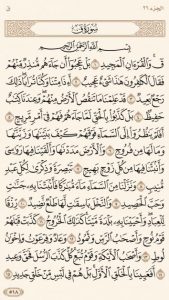 الجزء ٢٦ ق
سورة ق
بسم الله الرحمن الرحيم
ق والقرءان المجيد ١ بل عجبوا أن جاءهم منذر منهم
فقال الكافرون هذا شيء عجيب ٢ أءذا متنا وكنا ترابا ذلك
رجع بعيد ٣ قد علمنا ما تنقص الأرض منهم وعندنا كتاب
حفيظ ٤ بل كذبوا بالحق لما جاءهم فهم في أمر مريج ٥
أفلم ينظروا إلى السماء فوقهم كيف بنيناها وزيناها
وما لها من فروج ٦ والأرض مددناها وألقينا فيها رواسي
وأنبتنا فيها من كل زوج بهيج ٧ تبصرة وذكرى لكل عبد
منيب ٨ ونزلنا من السماء ماء مباركا فأنبتنا به جنات
وحب الحصيد ٩ والنخل باسقات لها طلع نضيد ١٠ رزقا
للعباد وأحيينا به بلدة ميتا كذلك الخروج ١١ كذبت قبلهم
قوم نوح وأصحاب الرس وثمود ١٢ وعاد وفرعون وإخوان
لوط ١٣ وأصحاب الأيكة وقوم تبع كل كذب الرسل فحق وعيد
١٤ أفعيينا بالخلق الأول بل هم في لبس من خلق جديد ١٥
٥١٨